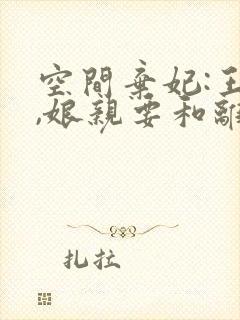 空間棄妃:王
,娘親要和離
扎拉